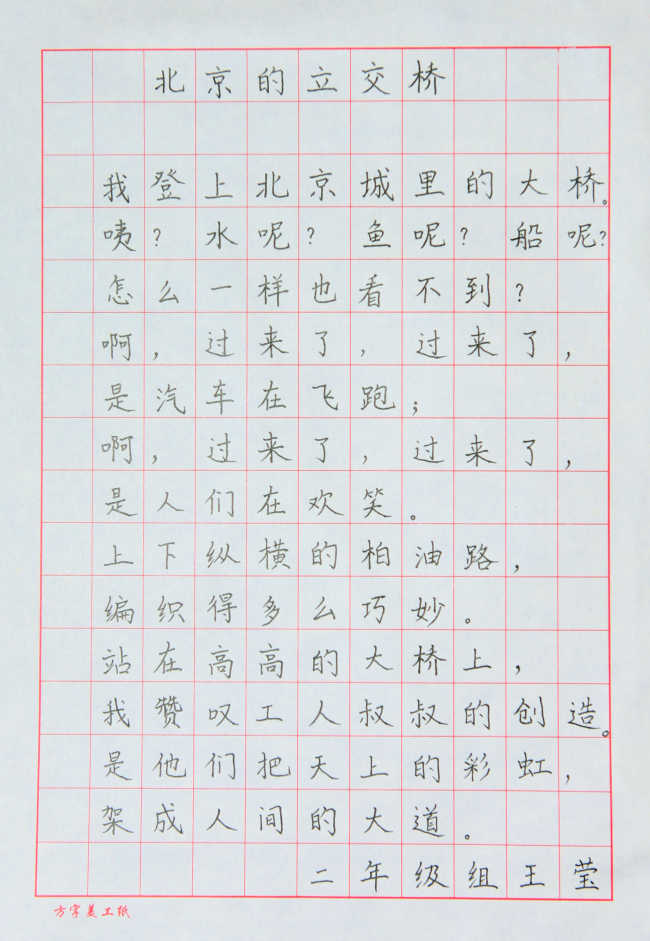 北京的立交桥
我登上北京城里的大桥。
咦？水呢？鱼呢？船呢？
怎么一样也看不到？
啊，过来了，过来了，
是汽车在飞跑；
啊，过来了，过来了，
是人们在欢笑。
上下纵横的柏油路，
编织得多么巧妙。
站在高高的大桥上，
我赞叹工人叔叔的创造。
是他们把天上的彩虹，
架成人间的大道。
二年级组王莹
方字美工纸